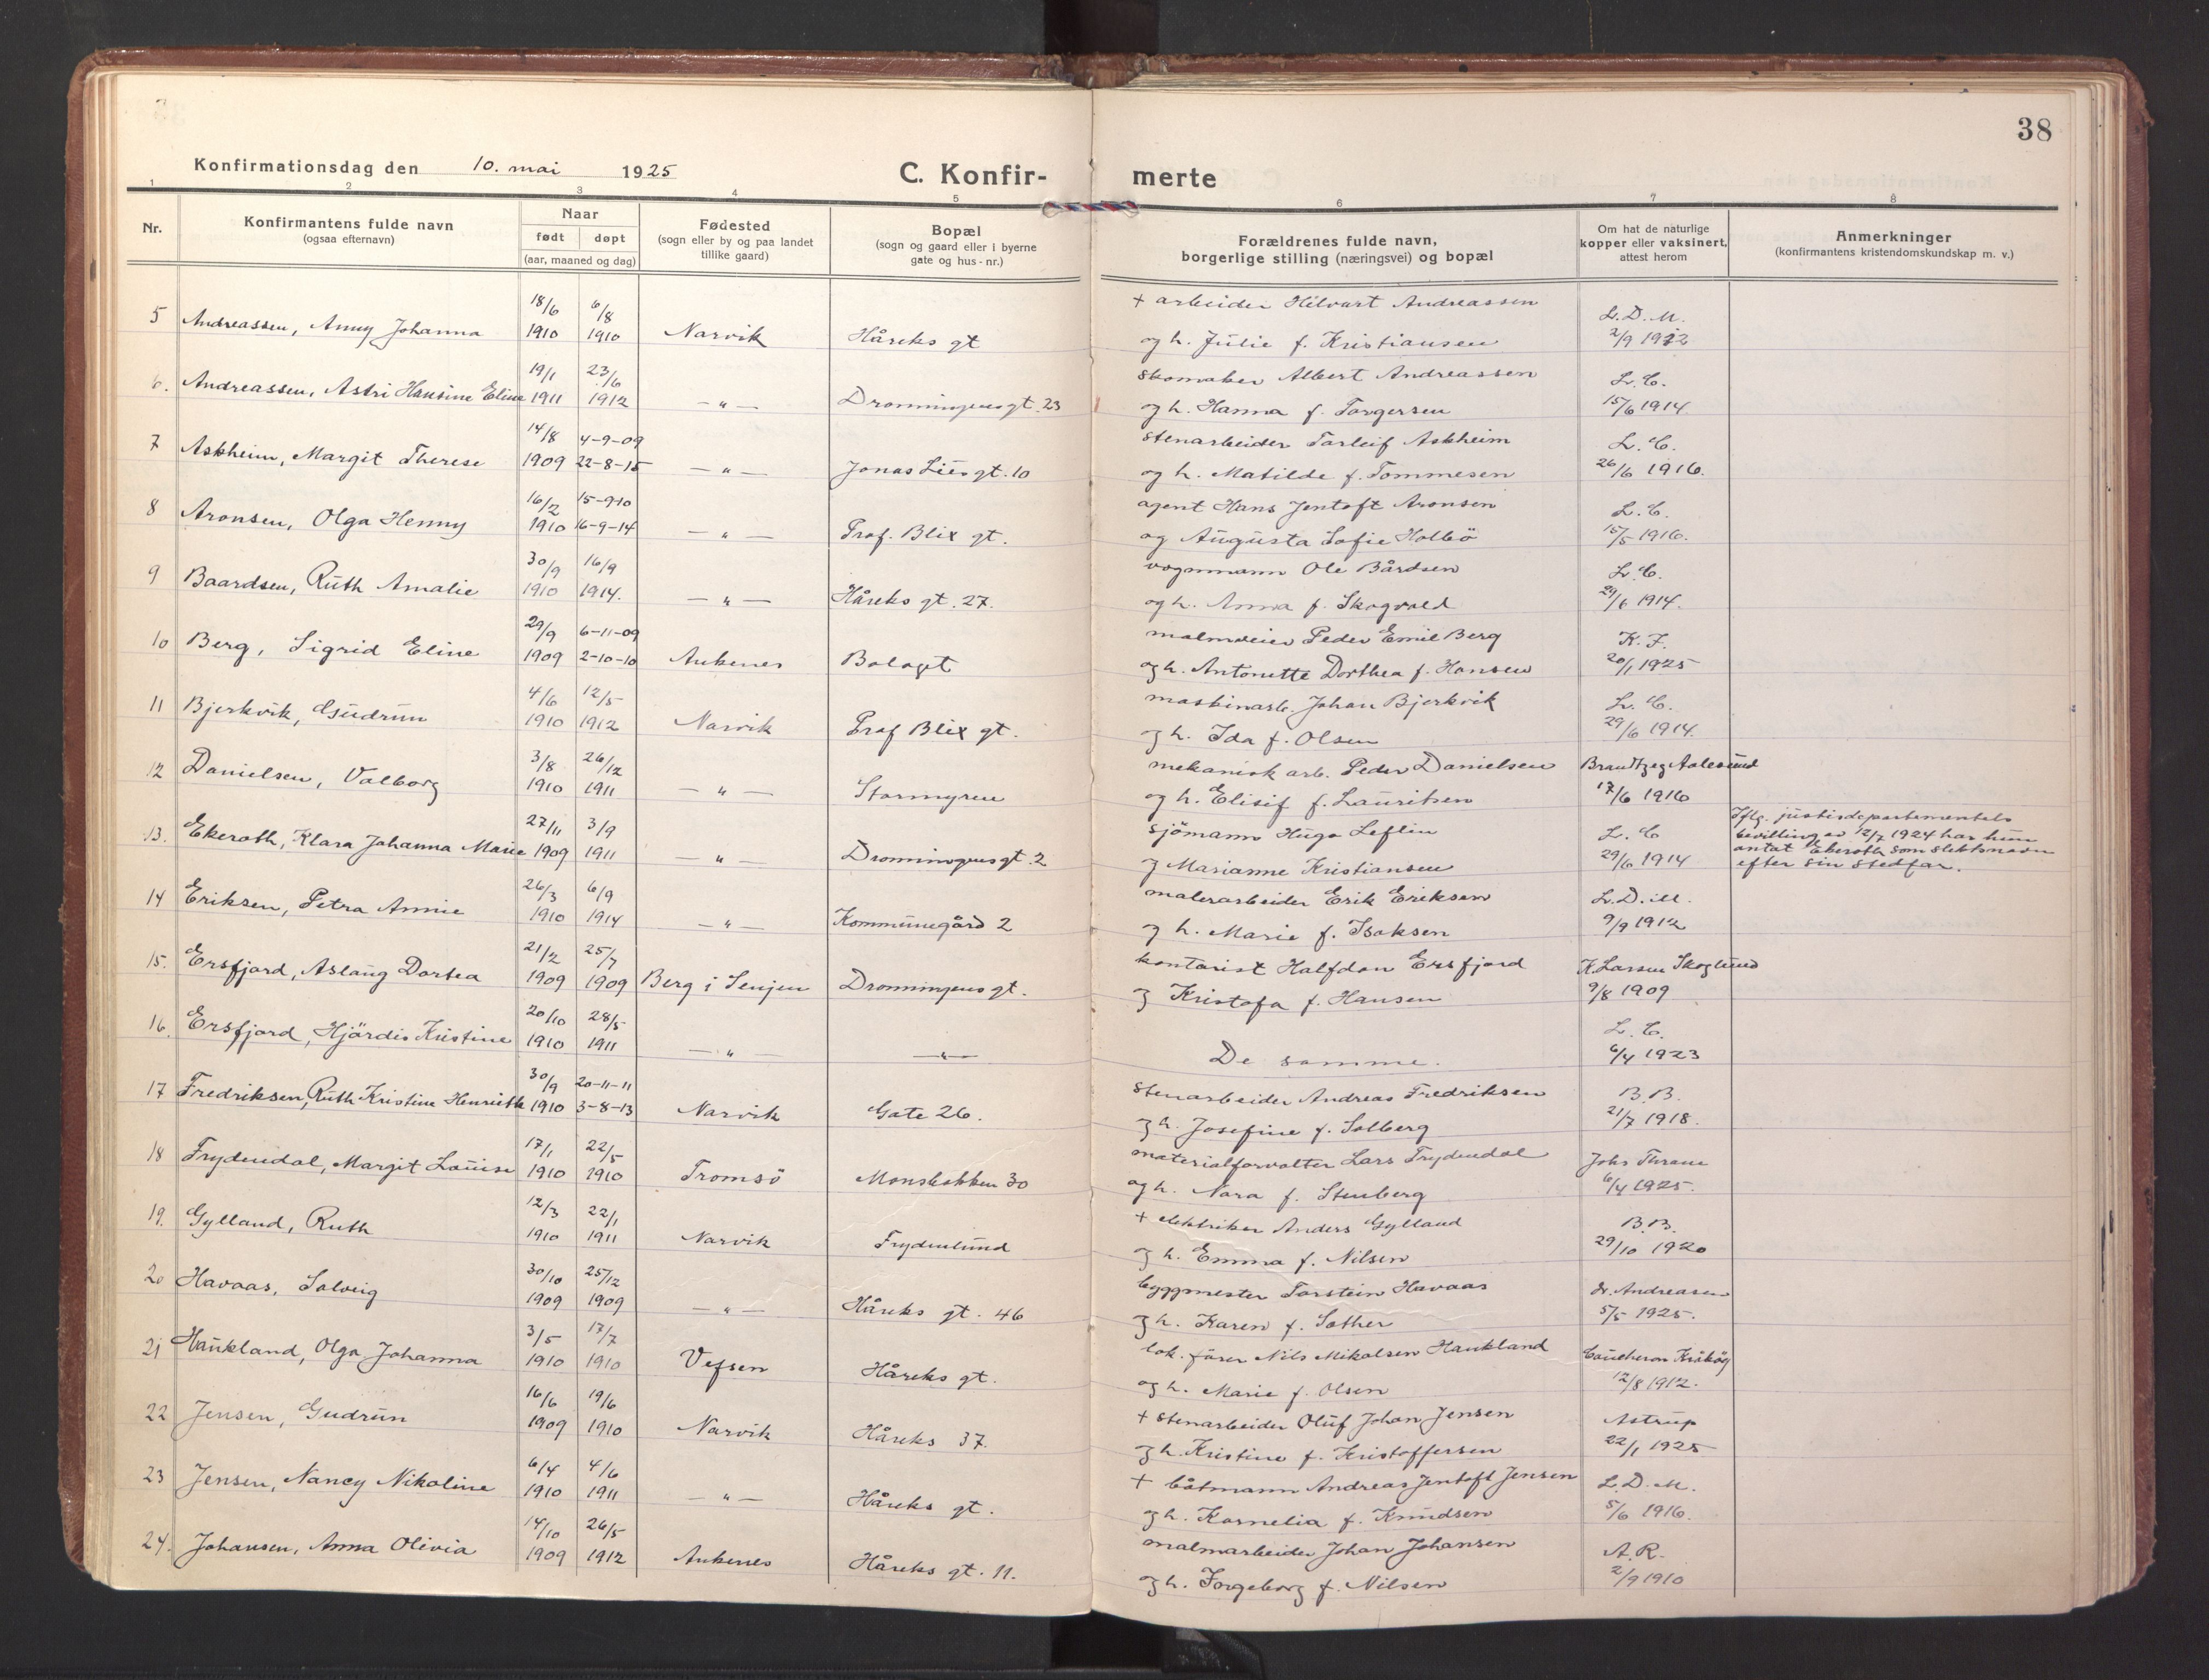 38
Konfirmationsdag den 10. mai 1925
C. Konfir- merte
1 2 3 4 5 6 7 8
Nr.
Konfirmantens fulde navn
(ogsaa efternavn)
Naar
født døpt
(aar, maaned og dag)
Fødested
(sogn eller by og paa landet
tillike gaard)
Bopæl
(sogn og gaard eller i byerne
gate og hus-nr.)
Forældrenes fulde navn,
borgerlige stilling (næringsvei) og bopæl
Om hat de naturlige
kopper eller vaksinert,
attest herom
Anmerkninger
(konfirmantens kristendomskundskap m. v.)
18/6 6/8 + arbeider Hilvart Andreassen L.D.M.
5 Andreassen, Anny Johanna 1910 1910 Narvik Håreks gt og h. Julie f. Kristiansen 2/9 1912
19/1 23/6 skomaker Albert Andreassen L.C.
6. Andreassen, Astri Hansine Eline 1911 1912 — " — Dronningens gt. 23 og h. Hanna f. Torgersen 15/6 1914
14/8 4-9-09 stenarbeider Torleif Askheim L.C.
7 Askheim, Margit Therese 1909 22-8-15 — " — Jonas Lies gt. 10 og h. Matilde f. Tommesen 26/6 1916.
16/2 15-9-10 agent Hans Jentoft Aronsen L.C.
8 Aronsen, Olga Henny 1910 16-9-14 — " — Prof. Blix gt. og Augusta Sofie Holbö 15/5 1916.
30/9 16/9 vognmann Ole Bårdsen L.C.
9 Baardsen, Ruth Amalie 1910 1914. — " — Håreks gt. 27. og h. Anna f. Skogvold 29/6 1914.
29/9 6-11-09 malmveier Peder Emil Berg K.F.
10 Berg, Sigrid Eline 1909 2-10-10 Ankenes Bolaget og h. Antonette Dorthea f. Hansen 20/1 1925
4/6 12/5 maskinarb. Johan Bjerkvik L.C.
11 Bjerkvik, Gudrun 1910 1912 Narvik Prof Blix gt. og h. Ida f. Olsen 29/6 1914.
3/8 26/12 mekanisk arb. Peder Danielsen Brandtzeg Aalesund
12 Danielsen, Valborg 1910 1911 — " — Stormyren og h. Elisif f. Lauritsen 17/6 1916
27/11 3/9 sjömann Hugo Leflin L.C
13. Ekeroth, Klara Johanna Marie 1909 1911 — " — Dronningens gt. 2 og Marianne Kristiansen 29/6 1914
Iflg. justisdepartementets
bevilling av 12/7 1924 har hun
antat Ekeroth som slektsnavn
efter sin stedfar.
26/3 6/9 malerarbeider Erik Eriksen L.D.M.
14 Eriksen, Petra Annie 1910 1914 — " — Kommunegård 2 og h. Marie f. Isaksen 9/9 1912
21/2 25/7 kontorist Halfdan Ersfjord K. Larsen Skoglund
15. Ersfjord, Aslaug Dortea 1909 1909 Berg i Senjen Dronningens gt. og Kristofa f. Hansen 9/8 1909
20/10 28/5 L.C.
16. Ersfjord, Hjördis Kristine 1910 1911 — " — — " — De samme. 6/4 1923
30/9 20-11-11 stenarbeider Andreas Fredriksen B.B.
17 Fredriksen, Ruth Kristine Henriette 1910 3-8-13 Narvik Gate 26. og h. Josefine f. Solberg 21/7 1918.
17/1 22/5 materialforvalter Lars Frydendal Johs Thrane
18 Frydendal, Margit Louise 1910 1910 Tromsö Monsbakken 30 og h. Nora f. Stenberg 6/4 1925.
12/3 22/1 + elektriker Anders Gylland B.B.
19. Gylland, Ruth 1910 1911 Narvik Frydenlund og h. Emma f. Nilsen 29/10 1920
30/10 25/12 byggmester Torstein Havaas dr. Andreasen
20 Havaas, Solveig 1909 1909 — " — Håreks gt. 46 og h. Karen f. Sæther 5/5 1925.
3/5 17/7 lok. fører Nils Mikalsen Haukland
21 Haukland, Olga Johanna 1910 1910 Vefsen Håreks gt. og h. Marie f. Olsen 12/8 1912.
16/6 19/6 + stenarbeider Oluf Johan Jensen Astrup
22 Jensen, Gudrun 1909 1910 Narvik Håreks 37. og h. Kristine f. Kristoffersen 22/1 1925
6/4 4/6 + båtmann Andreas Jentoft Jensen L.D.M.
23 Jensen, Nancy Nikoline 1910 1911 — " — Håreks gt. og h. Kornelia f. Knudsen 5/6 1916.
14/10 26/5 malmarbeider Johan Johansen A.R.
24. Johansen, Anna Olivia 1909 1912 Ankenes Håreks gt. 11. og h. Ingeborg f. Nilsen 2/9 1910